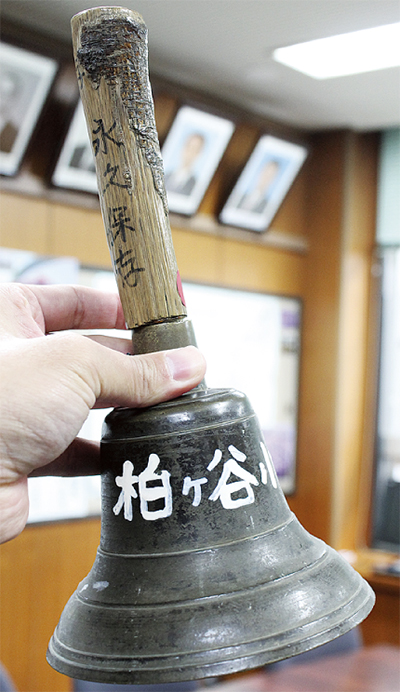 永久保存
柏ヶ谷小